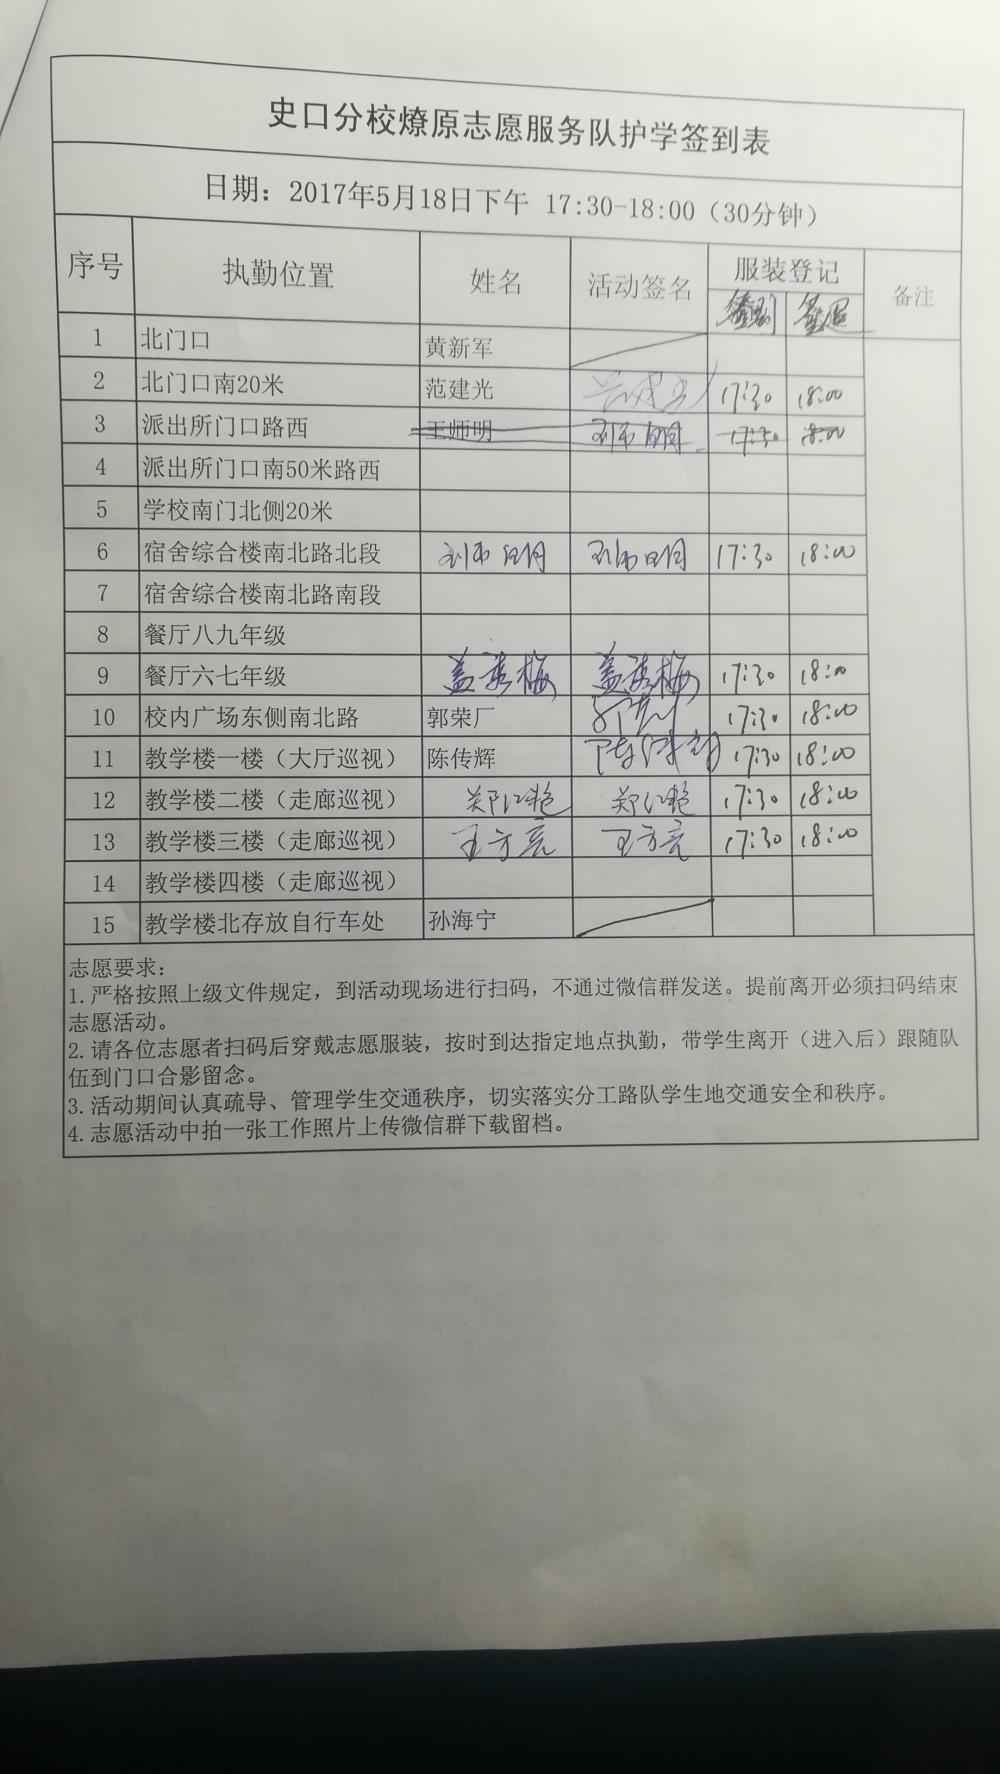 史口分校燎原志愿服务队护学签到表
日期：2017年5月18日下午 17:30-18:00（30分钟）
序号 执勤位置 姓名 活动签名 服装登记 备注
签到 签退
1 北门口 黄新军
2 北门口南20米 范建光 范建光 17:30 18:00
3 派出所门口路西 王师明 刘师明 17:30 18:00
4 派出所门口南50米路西
5 学校南门北侧20米
6 宿舍综合楼南北路北段 刘师明 刘师明 17:30 18:00
7 宿舍综合楼南北路南段
8 餐厅八九年级
9 餐厅六七年级 盖秀梅 盖秀梅 17:30 18:00
10 校内广场东侧南北路 郭荣厂 17:30 18:00
11 教学楼一楼（大厅巡视） 陈传辉 陈传辉 17:30 18:00
12 教学楼二楼（走廊巡视） 郑红艳 郑红艳 17:30 18:00
13 教学楼三楼（走廊巡视） 王方亮 王方亮 17:30 18:00
14 教学楼四楼（走廊巡视）
15 教学楼北存放自行车处 孙海宁
志愿要求：
1.严格按照上级文件规定，到活动现场进行扫码，不通过微信群发送。提前离开必须扫码结束
志愿活动。
2.请各位志愿者扫码后穿戴志愿服装，按时到达指定地点执勤，带学生离开（进入后）跟随队
伍到门口合影留念。
3.活动期间认真疏导、管理学生交通秩序，切实落实分工路队学生地交通安全和秩序。
4.志愿活动中拍一张工作照片上传微信群下载留档。